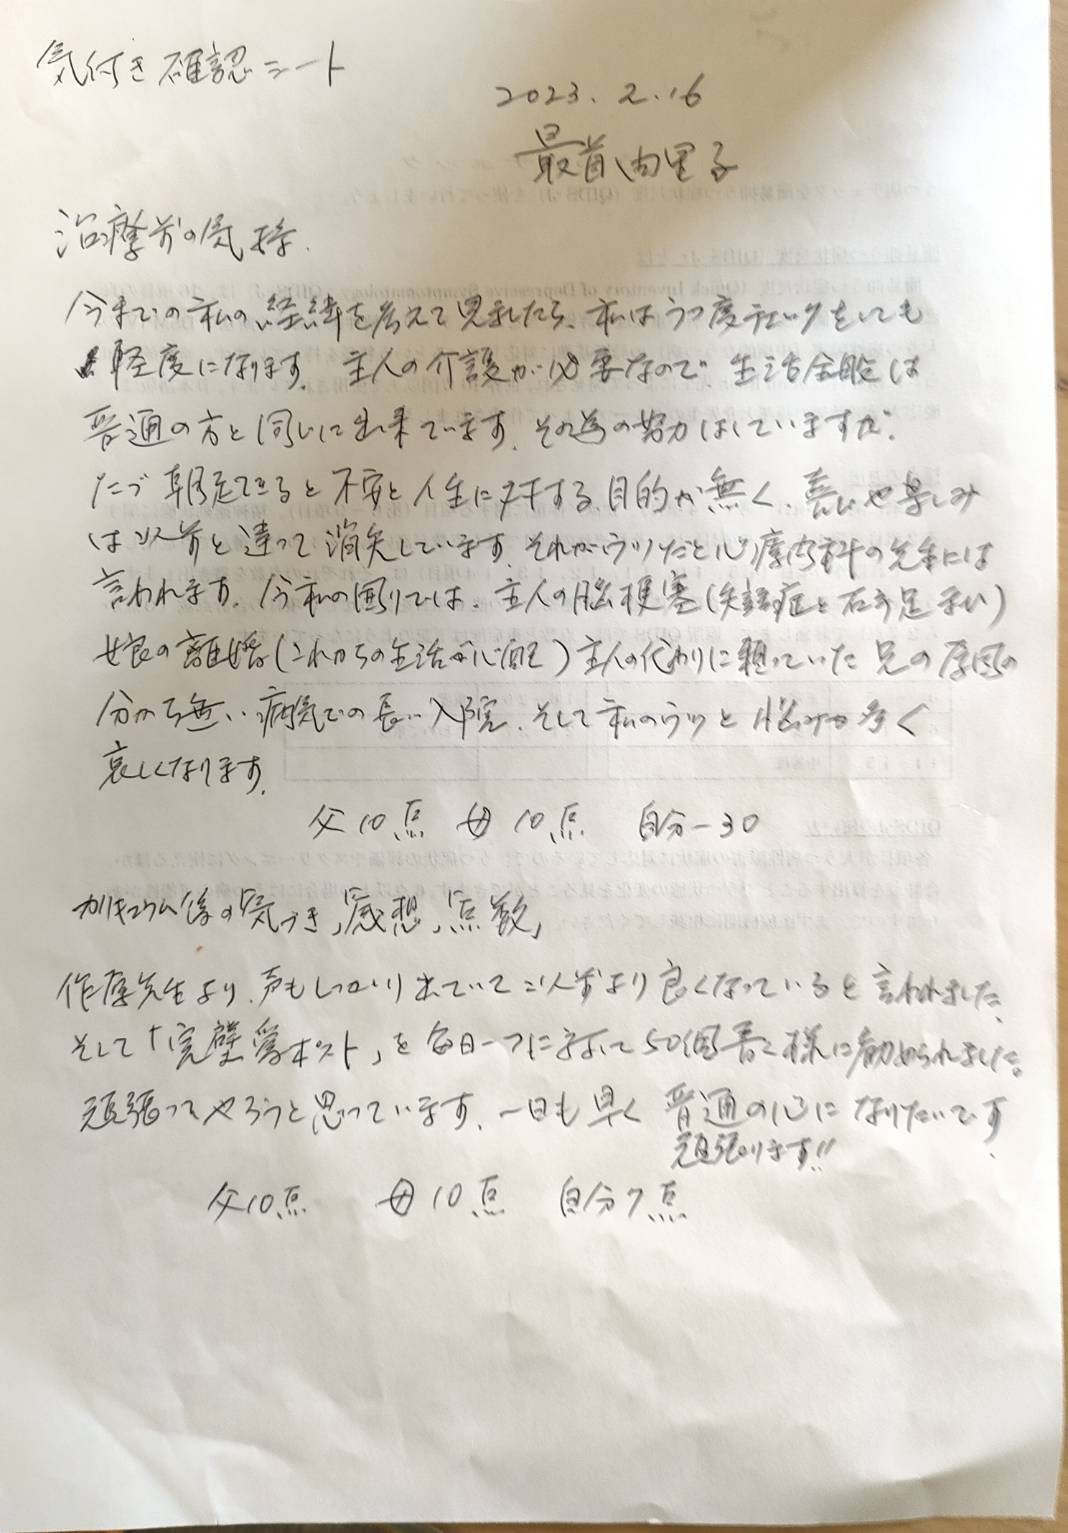 気付き確認シート
2023.2.16
最首由里子
治療前の気持.
今までの私の経緯を考えて見ましたら、私はうつ度チェックをしても
軽度になります。主人の介護が必要なので、生活全般は
普通の方と同じに出来ています。その為の努力はしていますが.
ただ朝起てきると不安と人生に対する目的が無く、喜びや楽しみ
は以前と違って消失しています。それがウツだと心療内科の先生には
言われます。今私の困りでは、主人の脳梗塞(失語症と右手足マヒ)
娘の離婚(これからの生活が心配)主人の代わりに頼っていた兄の原因の
分から無い病気での長い入院、そして私のウツと悩みが多く
哀しくなります。
父10点 母10点 自分-30
カリキュラム後の「気づき」「感想」「点数」
先生より、声もしっかり出ていて以前より良くなっていると言われました。
そして「完璧愛ポスト」を毎日一つに対して50個書く様に勧められました。
頑張ってやろうと思っています。一日も早く普通の心になりたいです
頑張ります!!
父10点 母10点 自分7点